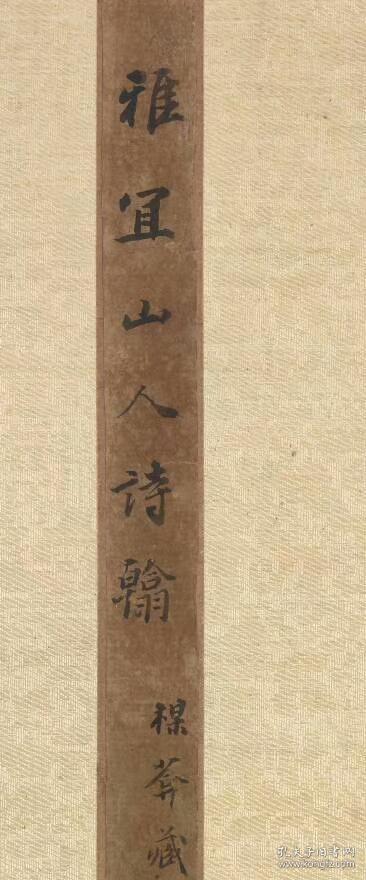 雅宜山人詩翰
葊藏
孔夫子旧书网